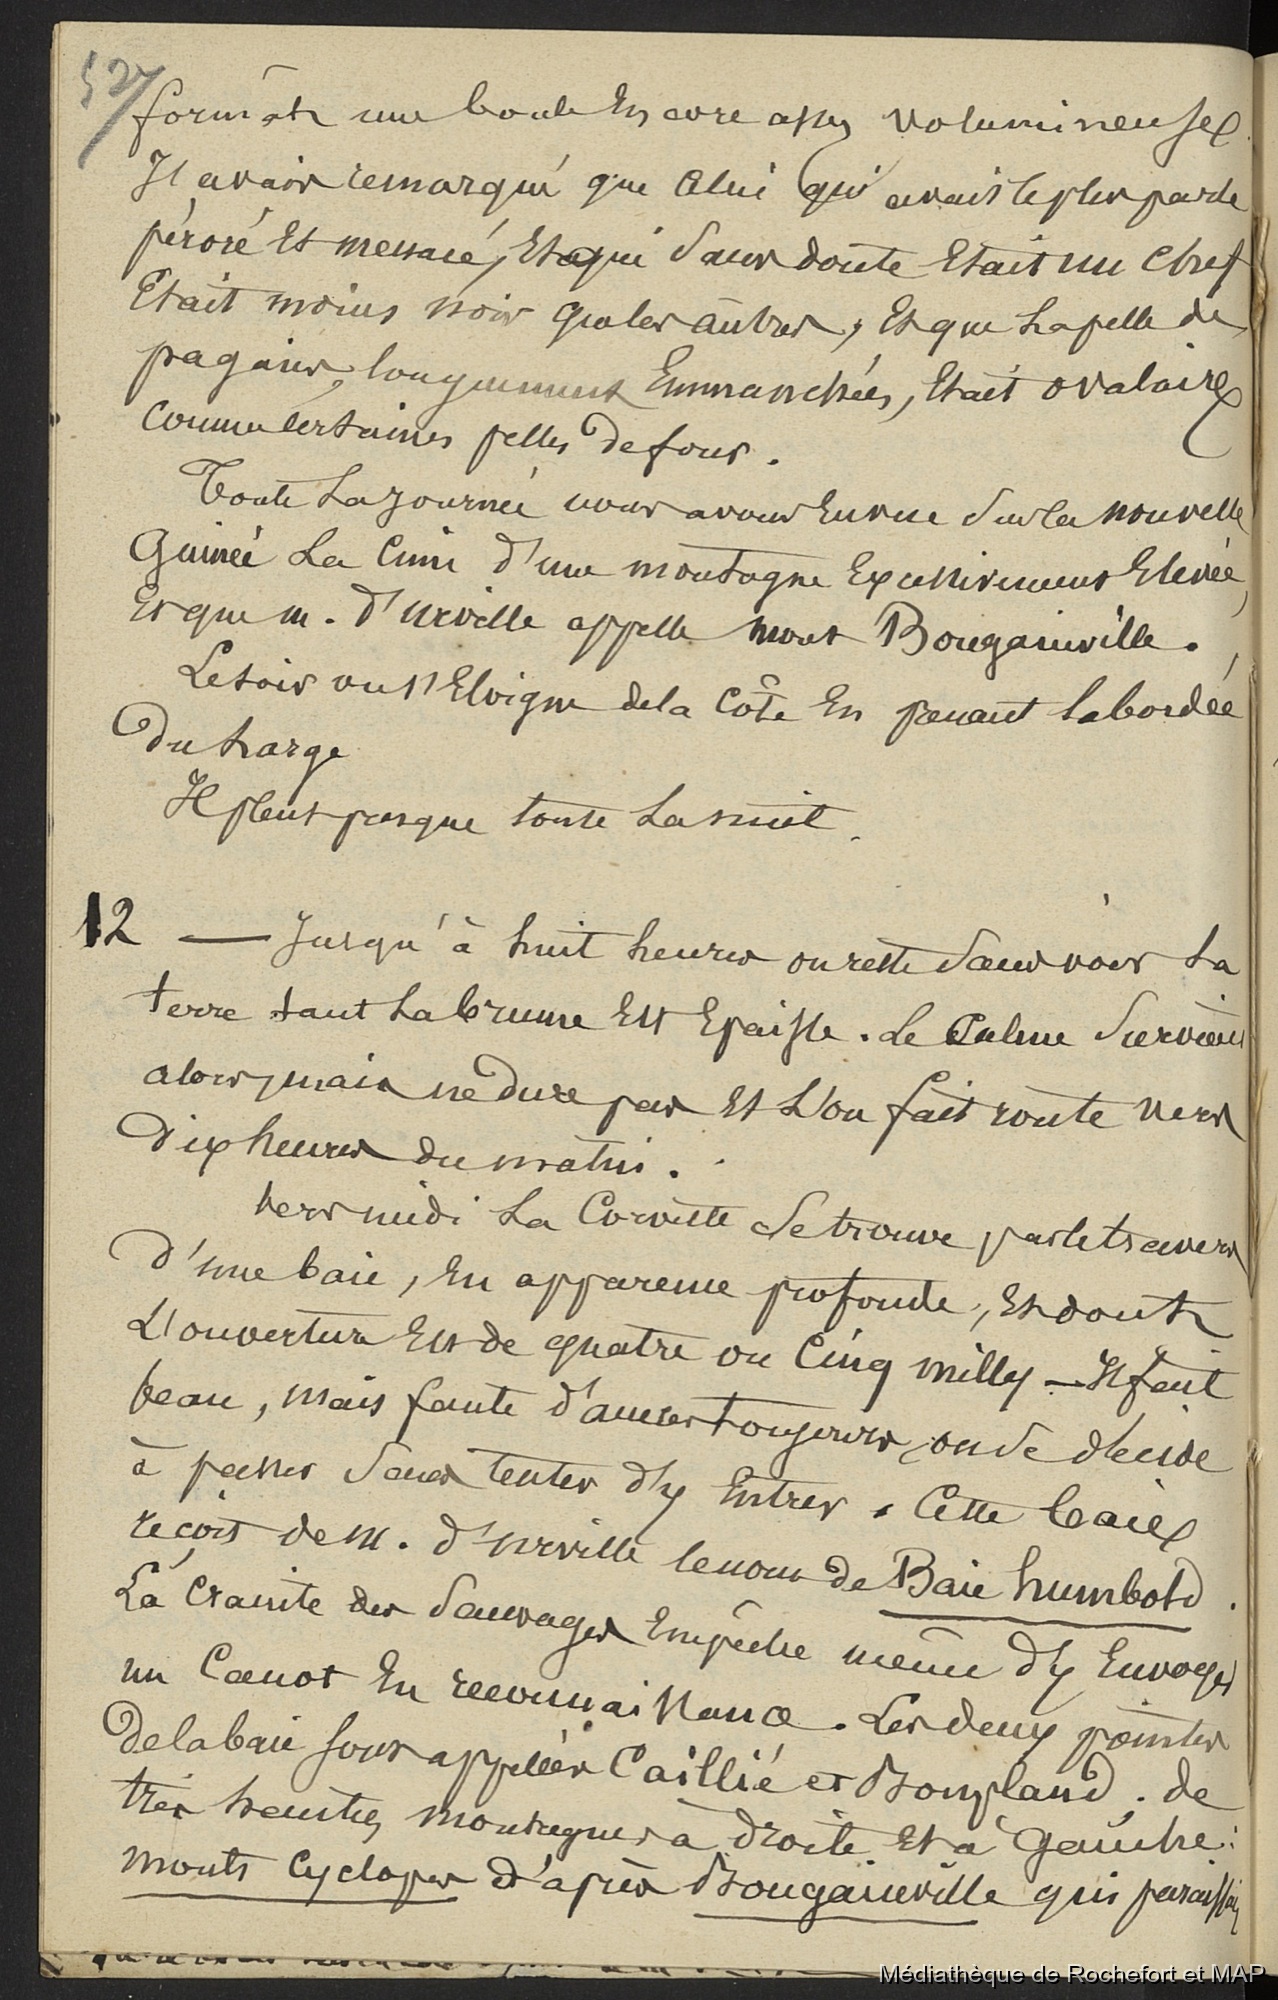 527
formât une boule encore assez volumineuse.
Il avait remarqué que celui qui avait le plus parlé
péroré et menacé, et qui sans doute était un chef
était moins noir que les autres, et que la pelle des
pagaies, longuement emmanchées, était ovalaire
comme certaines pelles de four.
Toute la journée nous avons en vue sur la nouvelle
Guinée la cime d'une montagne excessivement élevée,
et que m. d'urville appelle mont Bougainville.
Le soir on s'éloigne de la côte en prenant la bordée
du large
Il pleut presque toute la nuit.
12 — Jusqu'à huit heures on reste sans voir la
terre tant la brume est épaisse. Le calme survient
alors, mais ne dure pas et l'on fait route vers
dix heures du matin.
vers midi la Corvette se trouve par le travers
d'une baie, en apparence profonde, et dont
l'ouverture est de quatre ou cinq milles — Il fait
beau, mais faute d'ancres toujours, on se décide
à passer sans tenter d'y entrer. Cette baie
reçoit de m. d'urville le nom de Baie humbold.
La crainte des sauvages empêche même d'y envoyer
un canot en reconnaissance. Les deux pointes
de la baie sont appelées Caillié et Bonpland. de
très hautes montagnes à droite et à gauche:
monts cyclopes d'après Bougainville qui paraissai
Médiathèque de Rochefort et MAP